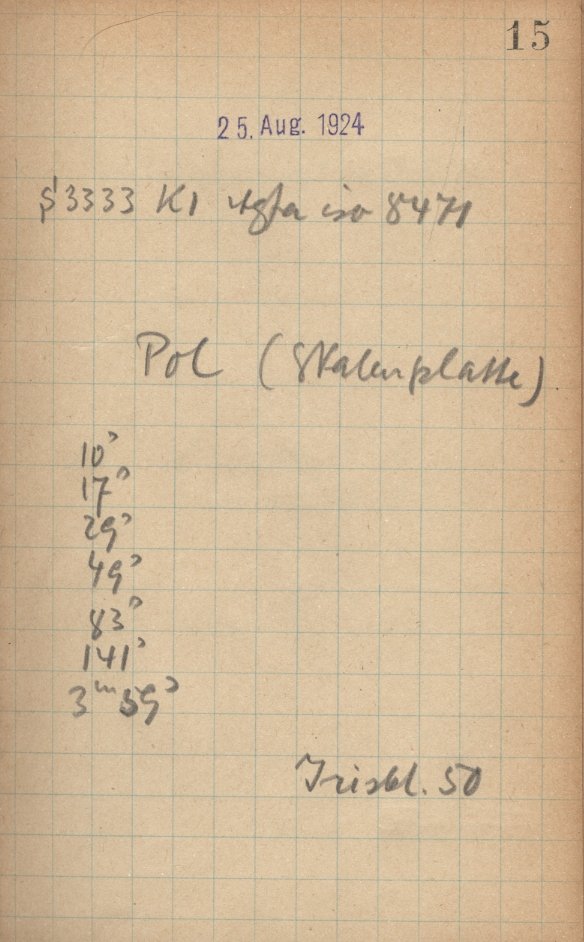 15
25. Aug. 1924
S 3333 K1 Agfa iso 8471
Pol (Skalenplatte)
10ˢ
17ˢ
29ˢ
49ˢ
83ˢ
141ˢ
3ᵐ 59ˢ
Irisbl. 50